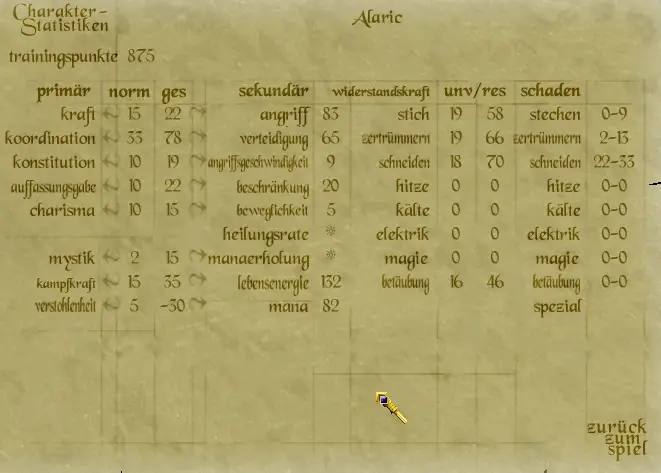 Charakter-
Statistiken
Alaric
trainingspunkte 875
primär norm ges sekundär widerstandskraft unv/res schaden
kraft 15 22 angriff 83 stich 19 58 stechen 0-9
koordination 33 78 verteidigung 65 zertrümmern 19 66 zertrümmern 2-13
konstitution 10 19 angriffsgeschwindigkeit 9 schneiden 18 70 schneiden 22-33
auffassungsgabe 10 22 beschränkung 20 hitze 0 0 hitze 0-0
charisma 10 15 beweglichkeit 5 kälte 0 0 kälte 0-0
heilungsrate * elektrik 0 0 elektrik 0-0
mystik 2 15 manaerholung * magie 0 0 magie 0-0
kampfkraft 15 35 lebensenergie 132 betäubung 16 46 betäubung 0-0
verstohlenheit 5 -30 mana 82 spezial
zurück
zum
spiel